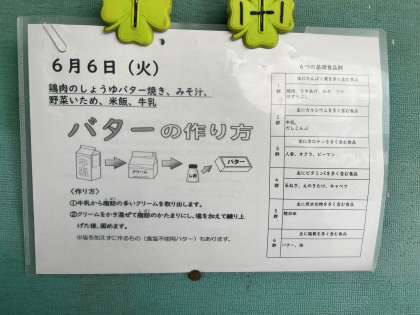 6月6日（火）
鶏肉のしょうゆバター焼き、みそ汁、
野菜いため、米飯、牛乳
バターの作り方
クリーム
塩
バター
＜作り方＞
①牛乳から脂肪の多いクリームを取り出します。
②クリームをかき混ぜて脂肪のかたまりにし、塩を加えて練り上
げた後、固めます。
※塩を加えずに作るもの（食塩不使用バター）もあります。
6つの基礎食品群
1
群
主にたんぱく質を多く含む食品
2
群
主にカルシウムを多く含む食品
牛乳、
だしこんぶ
3
群
主にカロテンを多く含む食品
人参、オクラ、ピーマン
4
群
主にビタミンCを多く含む食品
玉ねぎ、えのきたけ、キャベツ
5
群
主に炭水化物を多く含む食品
精白米
6
群
主に脂質を多く含む食品
バター、油